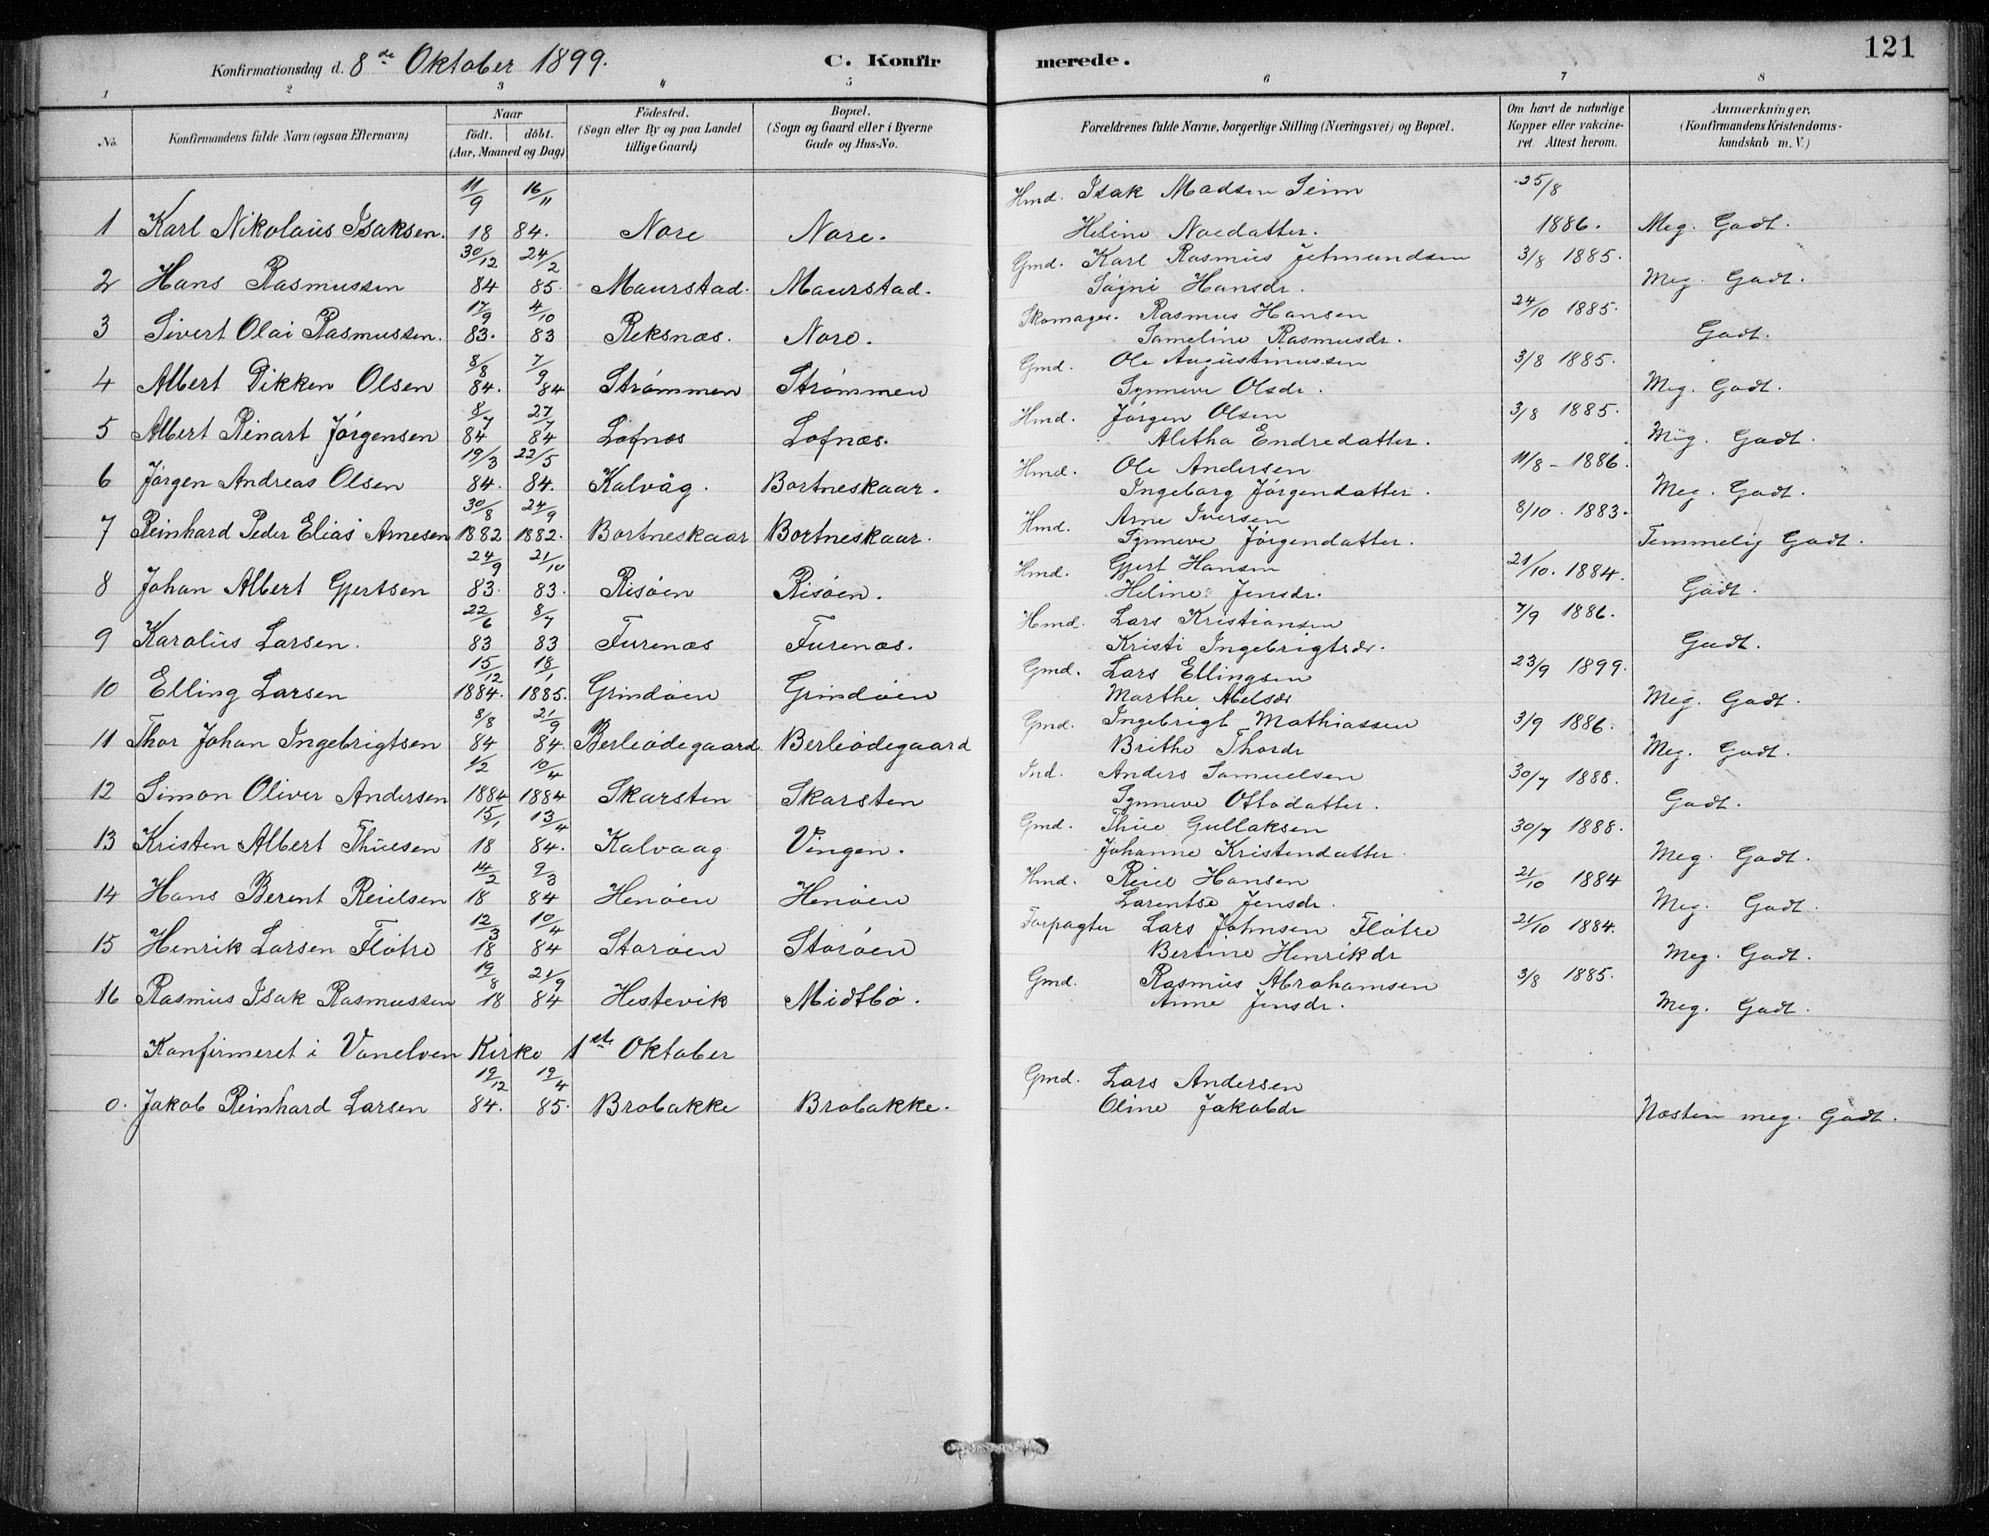 121
Konfirmationsdag d. 8de Oktober 1899. C. Konfirmerede.
1 2 3 4 5 6 7 8
No. Konfirmandens fulde Navn (ogsaa Efternavn) Naar födt. döbt. (Aar, Maaned og Dag) Födested. (Sogn eller By og paa Landet tillige Gaard) Bopæl. (Sogn og Gaard eller i Byerne Gade og Hus-No. Forældrenes fulde Navne, borgerlige Stilling (Næringsvei) og Bopæl. Om havt de naturlige Kopper eller vakcineret. Attest herom. Anmærkninger. (Konfirmandens Kristendomskundskab m. V.)
11/9 16/11 Hmd. Isak Madsen Seim 25/8
1 Karl Nikolaus Isaksen. 18 84. Nore Nore. Heline Noedatter. 1886. Meg. Godt.
30/12 24/2 Gmd. Karl Rasmus Jetmundsen 3/8 1885.
2 Hans Rasmussen 84 85. Maurstad. Maurstad. Søgni Hansdr. Meg. Godt.
17/9 4/10 Skomager. Rasmus Hansen 24/10 1885.
3 Sivert Olai Rasmussen. 83. 83 Reksnæs. Nore. Sameline Rasmusdr. Godt.
8/8 7/9 Gmd. Ole Augustinussen 3/8 1885.
4 Albert Dikken Olsen 84. 84 Strømmen Strømmen Synneve Olsdr. Meg. Godt.
8/7 27/7 Hmd. Jørgen Olsen 3/8 1885.
5 Albert Reinart Jørgensen 84 84 Lofnæs Lofnæs. Aletha Endredatter. Meg. Godt.
19/3 22/5 Hmd. Ole Andersen 11/8 - 1886.
6 Jørgen Andreas Olsen 84. 84. Kalvåg. Bortneskaar. Ingeborg Jørgendatter. Meg. Godt.
30/8 24/9 Hmd. Arne Iversen 8/10. 1883.
7 Reinhard Peder Elias Arnesen 1882 1882. Bortneskaar Bortneskaar. Synneve Jørgendatter. Temmelig Godt.
24/9 21/10 Hmd. Gjert Hansen 21/10. 1884.
8 Johan Albert Gjertsen 83. 83. Risøen Risøen. Heline Jensdr. Godt.
22/6 8/7 Hmd. Lars Kristiansen 7/9 1886.
9 Karolius Larsen. 83 83 Furenæs Furenæs. Kristi Ingebrigtsdr. Godt.
15/12 18/1 Gmd. Lars Ellingsen 23/9 1899.
10 Elling Larsen 1884. 1885. Grindøen Grindøen Marthe Abelsdr Meg. Godt.
8/8 21/9 Gmd. Ingebrigt Mathiassen 3/9 1886.
11 Thor Johan Ingebrigtsen 84 84. Berleødegaard. Berleødegaard Brithe Thordr Meg. Godt.
1/2 10/4 Ind. Anders Samuelsen 30/7 1888.
12 Simon Oliver Andersen 1884 1884 Skarsten Skarsten Synneve Ottodatter. Godt.
15/1 13/4 Gmd. Thue Gullaksen 30/7 1888.
13 Kristen Albert Thuesen 18 84. Kalvaag Vingen. Johanne Kristendatter. Meg. Godt.
14/2 9/3 Hmd. Reiel Hansen 21/10 1884
14 Hans Berent Reielsen 18 84 Henøen Henøen Larentse Jensdr. Meg. Godt.
12/3 10/4 Forpagter Lars Johnsen Fløtre 21/10 1884.
15 Henrik Larsen Fløtre 18 84 Storøen Storøen Bertine Henrikdr Meg. Godt.
19/8 21/9 Gmd. Rasmus Abrahamsen 3/8 1885.
16 Rasmus Isak Rasmussen 18 84 Hestevik Midtbø. Anne Jensdr. Meg. Godt.
Konfirmeret i Vanelven Kirke 1ste Oktober
19/12 19/4 Gmd. Lars Andersen
0. Jakob Reinhard Larsen 84. 85. Brobakke Brobakke. Oline Jakobdr Næsten meg. Godt.